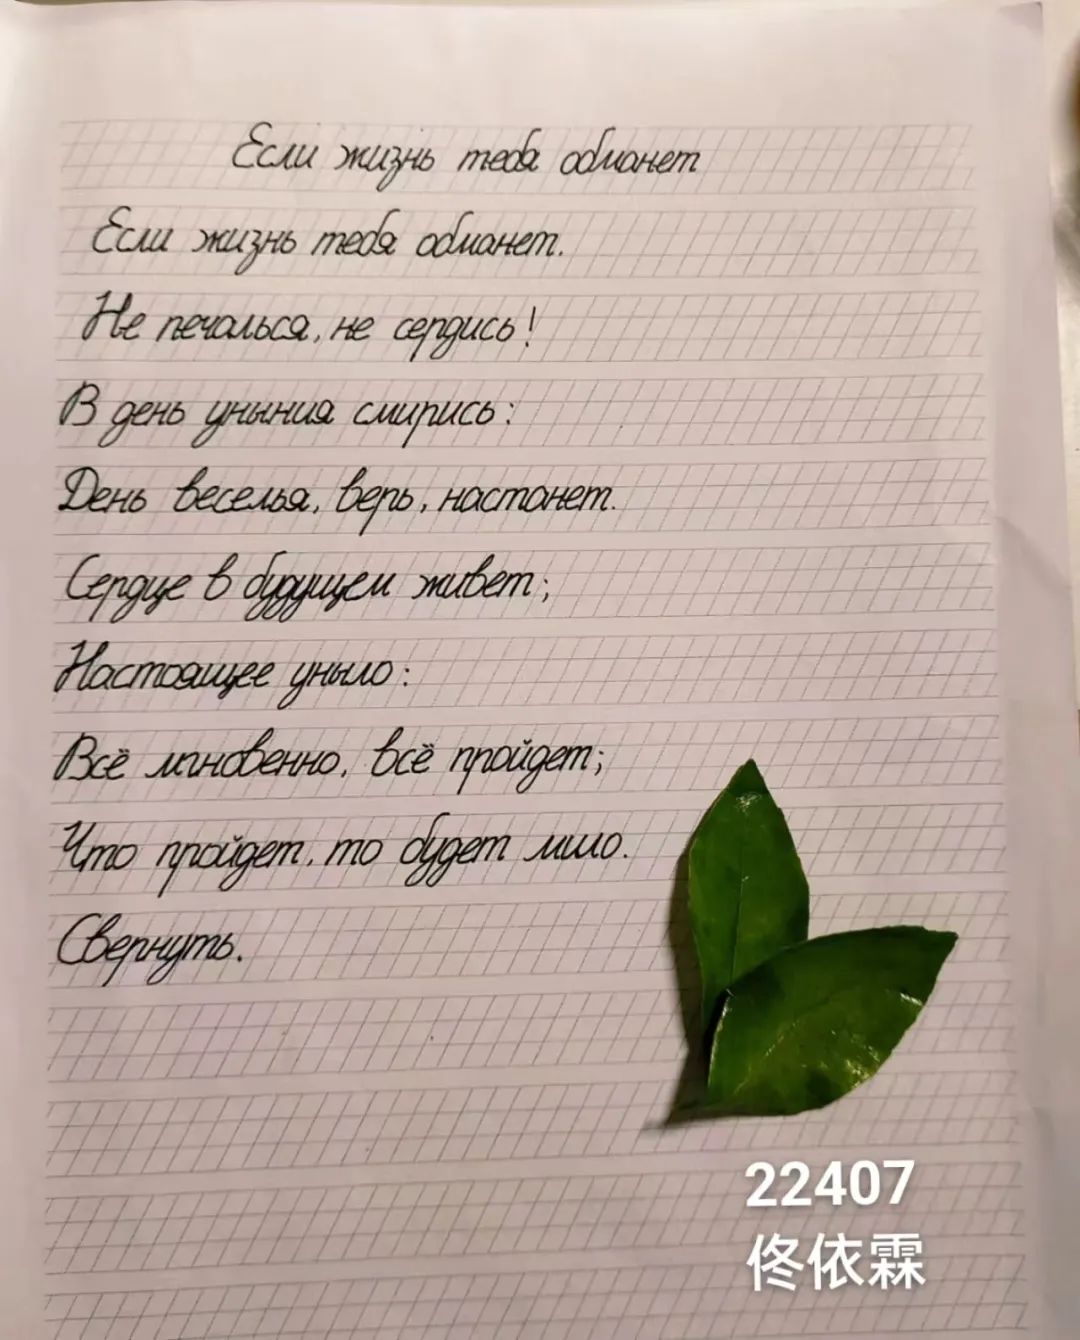 Если жизнь тебя обманет
Если жизнь тебя обманет.
Не печалься, не сердись!
В день уныния смирись:
День веселья, верь, настанет.
Сердце в будущем живет;
Настоящее уныло:
Всё мгновенно, всё пройдет;
Что пройдет, то будет мило.
Свернуть.
22407
佟依霖